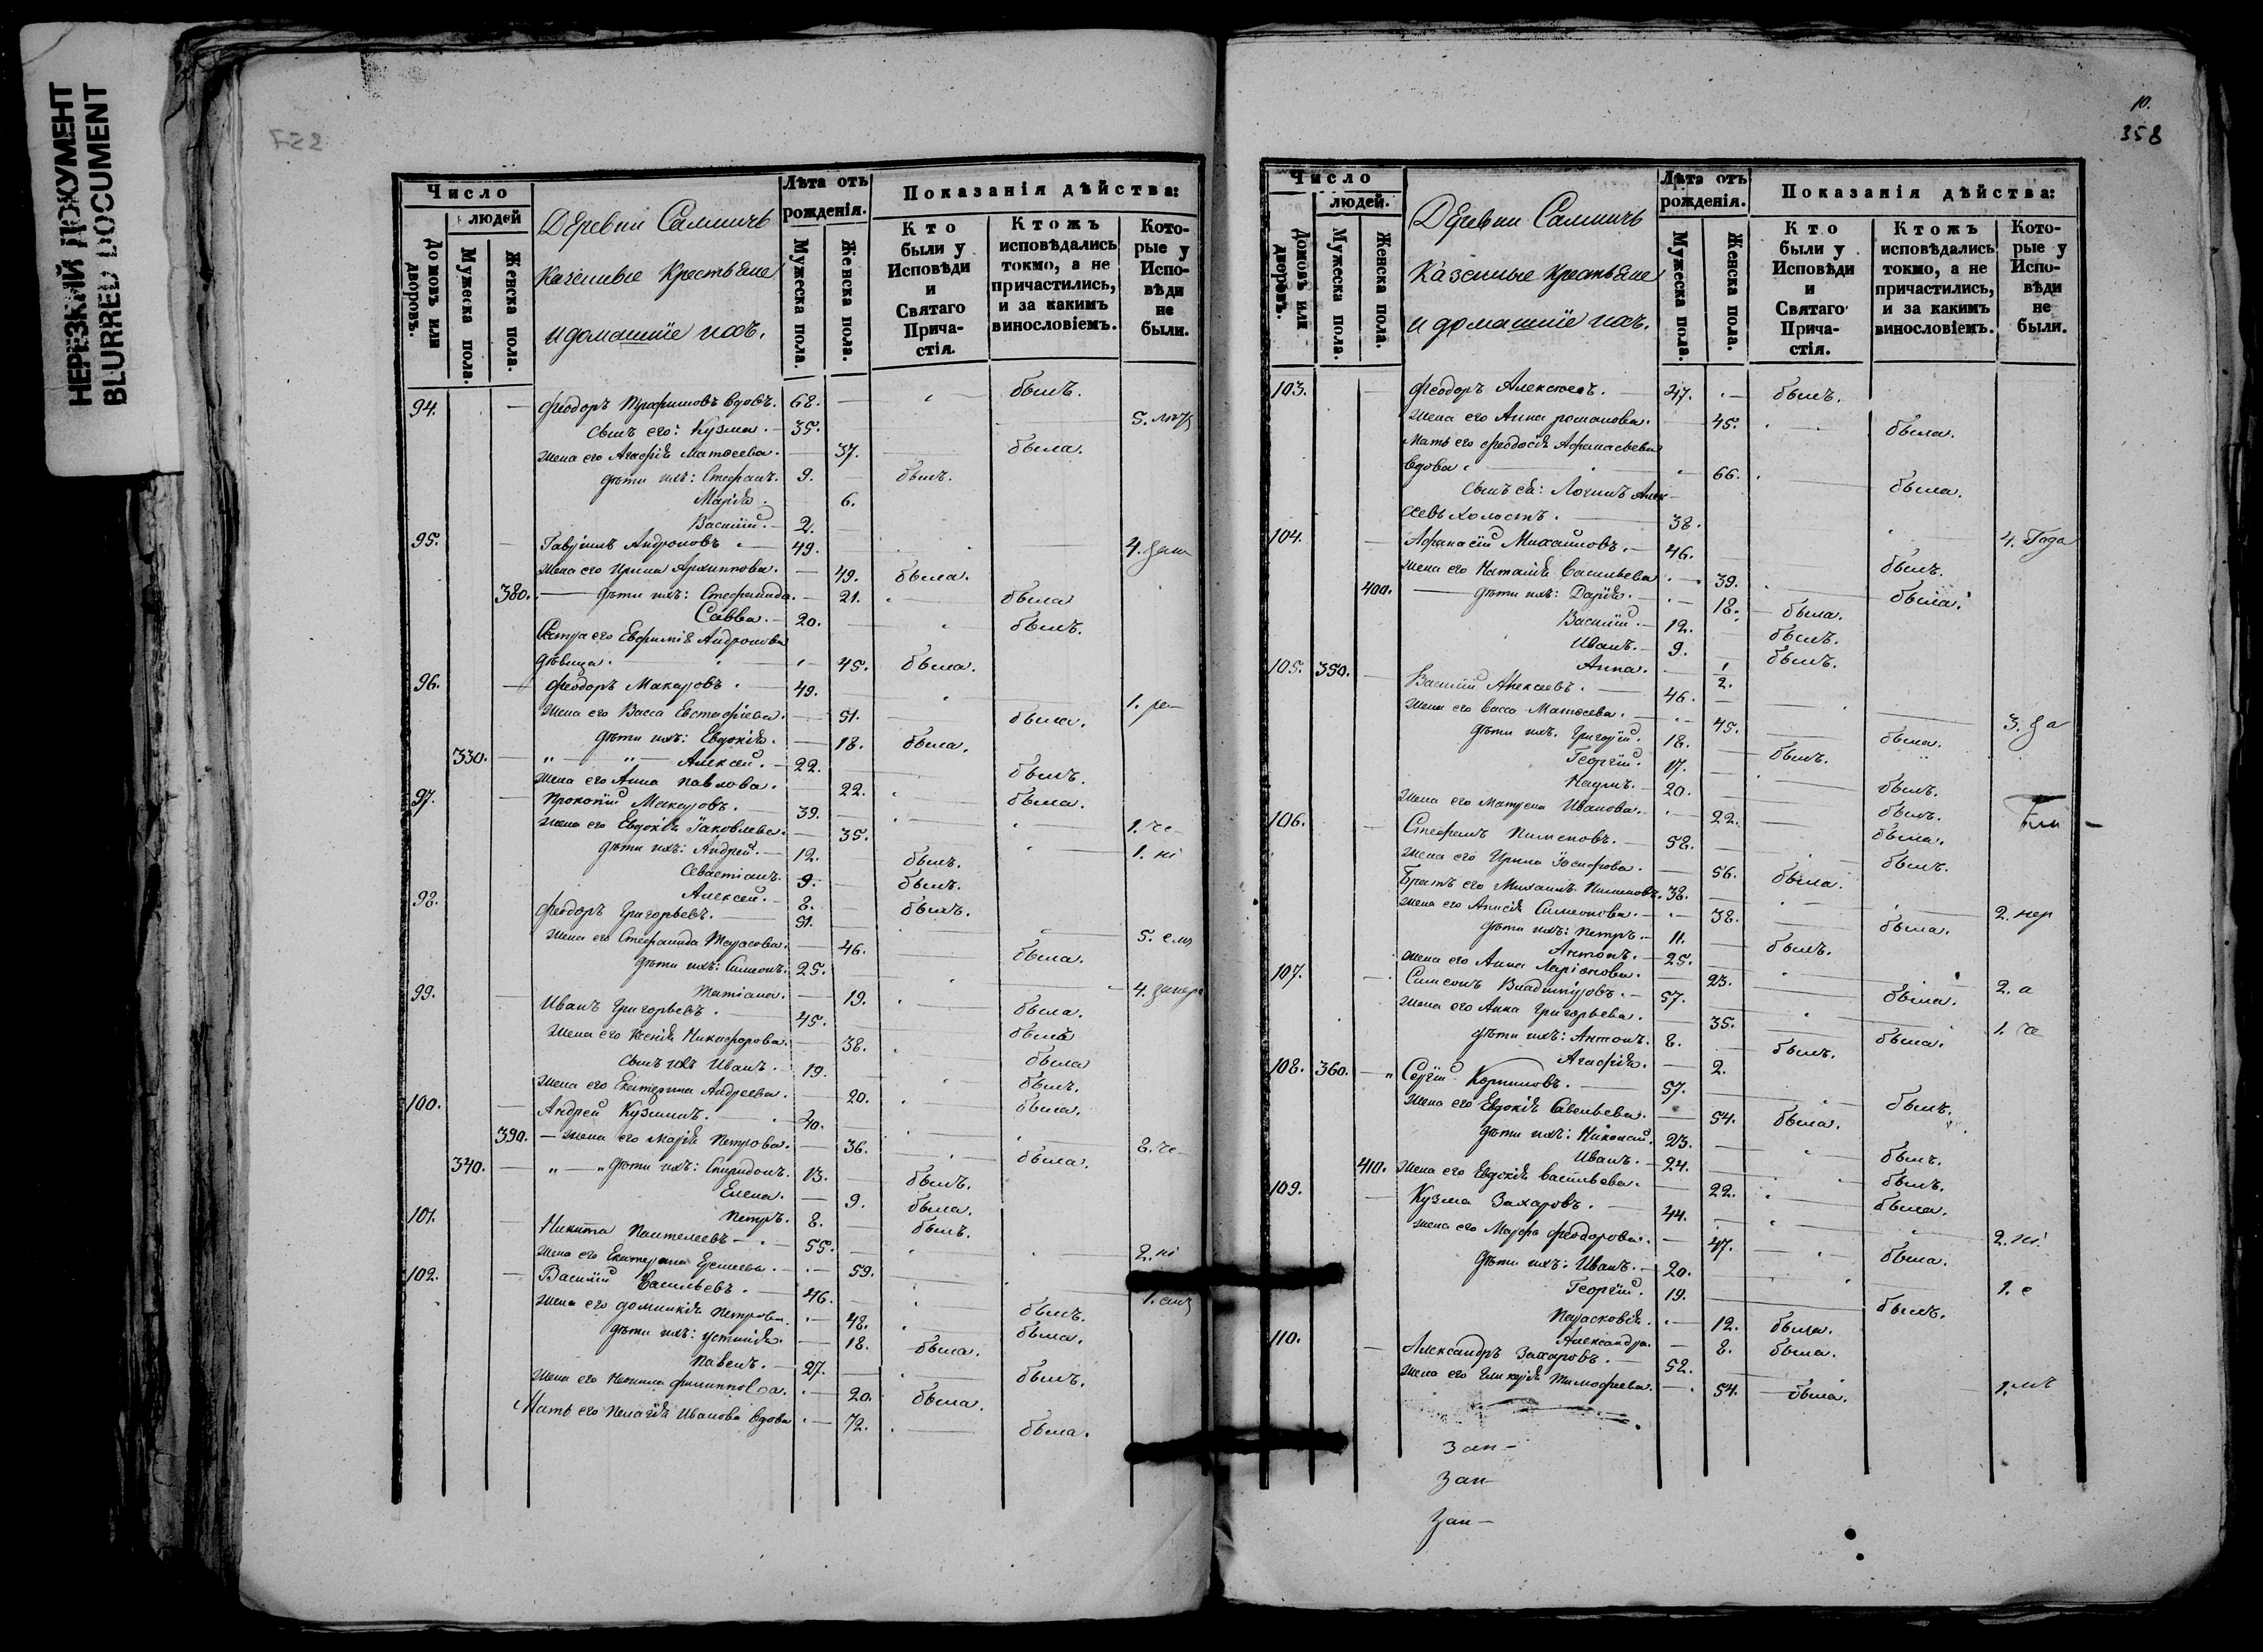 НЕРЕЗКИЙ ДОКУМЕНТ
BLURRED DOCUMENT
10.
358
Число
людей
Домовъ или дворовъ.
Мужеска пола.
Женска пола.
Деревни
Казенные Крестьяне
и домашніе ихъ.
Лѣта отъ рожденія.
Мужеска пола.
Женска пола.
Показанія дѣйства:
Кто были у Исповѣди и Святаго Причастія.
Ктожъ исповѣдались токмо, а не причастились, и за какимъ винословіемъ.
Которые у Исповѣди не были.
94. Феодоръ Трофимовъ вдовъ. 68. былъ.
Сынъ его: Кузма. 35. 5.
жена его Агафія Матѳеева. 37. была.
дѣти ихъ: Стефанъ. 9. былъ.
Марія. 6.
Василій. 2.
95. Гавріилъ Андроновъ 49. 4.
жена его Ирина Архиппова. 49. была.
380. дѣти ихъ: Стефанида. 21. была
Савва. 20. былъ.
Сестра его Евфимія Андронова
дѣвица. 45. была.
96. Феодоръ Макаровъ. 49. 1.
жена его Васса Евстафіева. 51. была.
дѣти ихъ: Евдокія. 18. была.
330. „ „ Алексей. 22. былъ.
жена его Анна Павлова. 22. была.
97. Прокопій Макаровъ. 39. 1.
жена его Евдокія Іаковлева. 35. 1.
дѣти ихъ: Андрей. 12. былъ.
Севастіанъ. 9. былъ.
Алексей. 8. былъ.
98. Феодоръ Григорьевъ. 51. 5.
жена его Стефанида Тарасова. 46. была.
дѣти ихъ: Симеонъ. 25. 4.
Татіана. 19. была.
99. Иванъ Григорьевъ. 45. былъ
жена его Ксенія Никифорова. 38. была
сынъ ихъ Иванъ. 19. былъ.
жена его Екатерина Андреева. 20. была.
100. Андрей Кузминъ. 40. 2.
390. жена его Марія Петрова. 36. была.
340. „ „ дѣти ихъ: Спиридонъ. 13. былъ.
Елена. 9. была.
Петръ. 8. былъ.
101. Никита Пантелеевъ 55. 2.
жена его Екатерина 59. 1.
102. Василій Васильевъ. 46. былъ.
жена его Домникія Петрова. 48. была.
дѣти ихъ: Устинія. 18. была.
Павелъ. 27. былъ.
жена его Неонила Филиппова. 20. была.
Мать его Пелагія Иванова вдова 72. была.
Число
людей.
Домовъ или дворовъ.
Мужеска пола.
Женска пола.
Деревни
Казенные Крестьяне
и домашніе ихъ.
Лѣта отъ рожденія.
Мужеска пола.
Женска пола.
Показанія дѣйства:
Кто были у Исповѣди и Святаго Причастія.
Ктожъ исповѣдались токмо, а не причастились, и за какимъ винословіемъ.
Которые у Исповѣди не были.
103. Феодоръ Алексеевъ. 47. былъ.
жена его Анна Романова. 45. была.
Мать его Феодосія Афанасьева
вдова 66. была.
сынъ ея: Логинъ Алек-
сеевъ холостъ. 38. 4. Года
104. Афанасій Михаиловъ. 46. былъ.
жена его Наталія Васильева 39. была.
400. дѣти ихъ: Дарія. 18. была.
Василій. 12. былъ.
Иванъ. 9. былъ.
Анна. 1/2.
105. 350. Василій Алексеевъ. 46. 3.
жена его Васса Матѳеева. 45. была.
дѣти ихъ. Григорій. 18. былъ.
Георгій. 17. былъ.
Наумъ. 20. былъ.
жена его Матрена Иванова. 22. была.
106. Стефанъ Пименовъ. 58. былъ.
жена его Ирина Іосифова. 56. была.
Братъ его Михаилъ Пименовъ. 38. 2.
жена его Анисія Симеонова. 38. была.
дѣти ихъ: Петръ. 11. былъ.
Антонъ. 25. 2.
жена его Анна Ларіонова. 23. была.
107. Симеонъ Владиміровъ. 57. 1.
жена его Анна Григорьева. 35. была.
дѣти ихъ: Антонъ. 8. былъ.
Агафія. 2.
108. 360. „ Сергій 57. былъ.
жена его Евдокія Савельева. 54. была.
дѣти ихъ: Николай. 23. былъ.
Иванъ. 24. былъ.
410. жена его Евдокія Васильева. 22. была.
109. Кузма Захаровъ. 44. 2.
жена его Марфа Феодорова. 47. была.
дѣти ихъ: Иванъ. 20. 1.
Георгій. 19. былъ.
Парасковія. 12. была.
Александра. 8. была.
110. Александръ Захаровъ. 52. 1.
жена его Гликерія Тимофеева. 54. была.